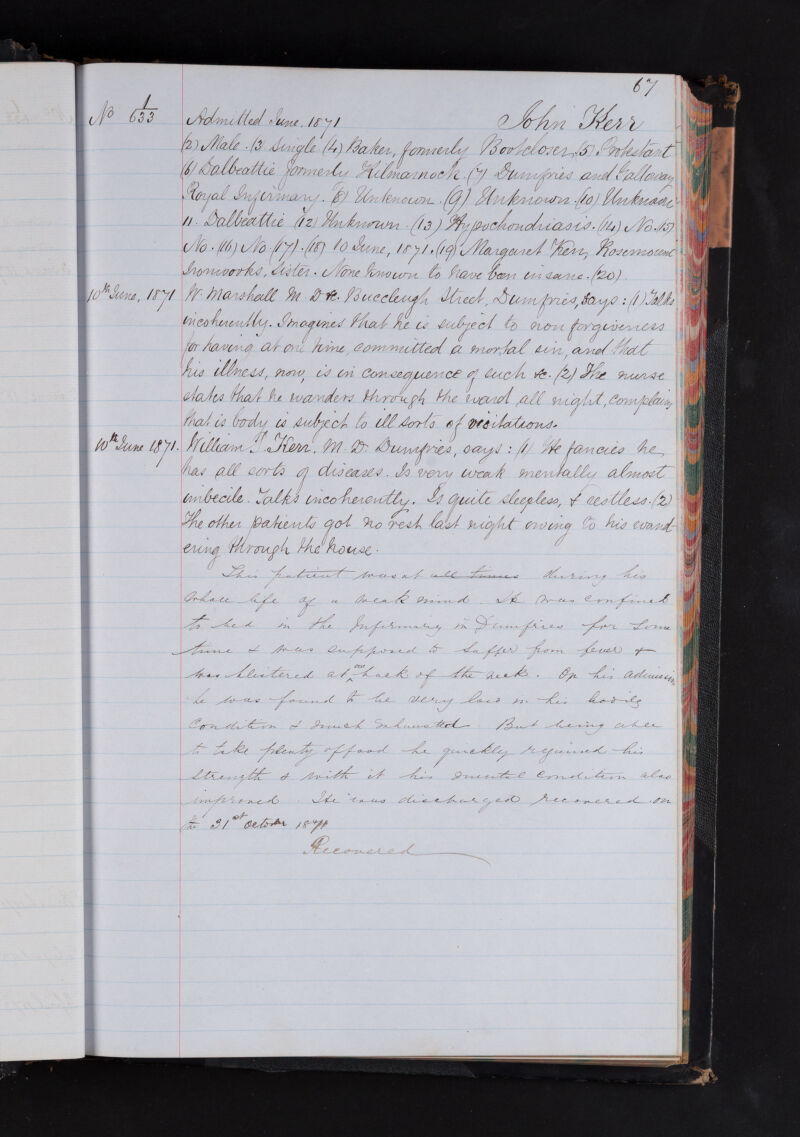 67
No 1/633 Admitted June. 1871 John Kerr
(2) Male. (3 Single (4) Baker, formerly Bootcloser, (5) Protestant
(6) Dalbeattie formerly Kilmarnock. (7) Dumfries and Galloway
Royal Infirmary. 8) Unknown. (9) Unknown. (10) Unknown
11. Dalbeattie (12) Unknown. (13) Hypochondriasis. (14) No. 15)
No. (16) No (17). (18) 10 June, 1871. (19) Margaret Kerr, Rosemount
Ironworks, Sister. None known to have been insane. (20)
10th June, 1871 W. Marshall M. D &c. Buccleugh Street, Dumfries, says: (1) Talks
incoherently. Imagines that he is subject to non forgiveness
for having at one time, committed a mortal sin, and that
his illness, now, is in consequence of such &c. (2) The nurse
states that he wanders through the ward all night, complains
that is body is subject to ill sorts of
10th June 1871. William J Kerr. M. D. Dumfries, says: (1) He fancies he
has all sorts of diseases. Is very weak mentally almost
imbecile. Talks incoherently. Is quite sleepless, & restless. (2)
The other patients got no rest last night owing to his wand
ering through the house.
This patient was at all times during his
whole life of a weak mind. He was confined
to bed in the Infirmary in Dumfries for some
time & was supposed to suffer from fever &
was blistered at back of the neck. On his admission
he was found to be very low in his bodily
condition & much exhausted But being able
to take plenty of food he quickly regained his
strength & with it his mental condition also
improved. He was discharged recovered on
the 31st October 1871
Recovered